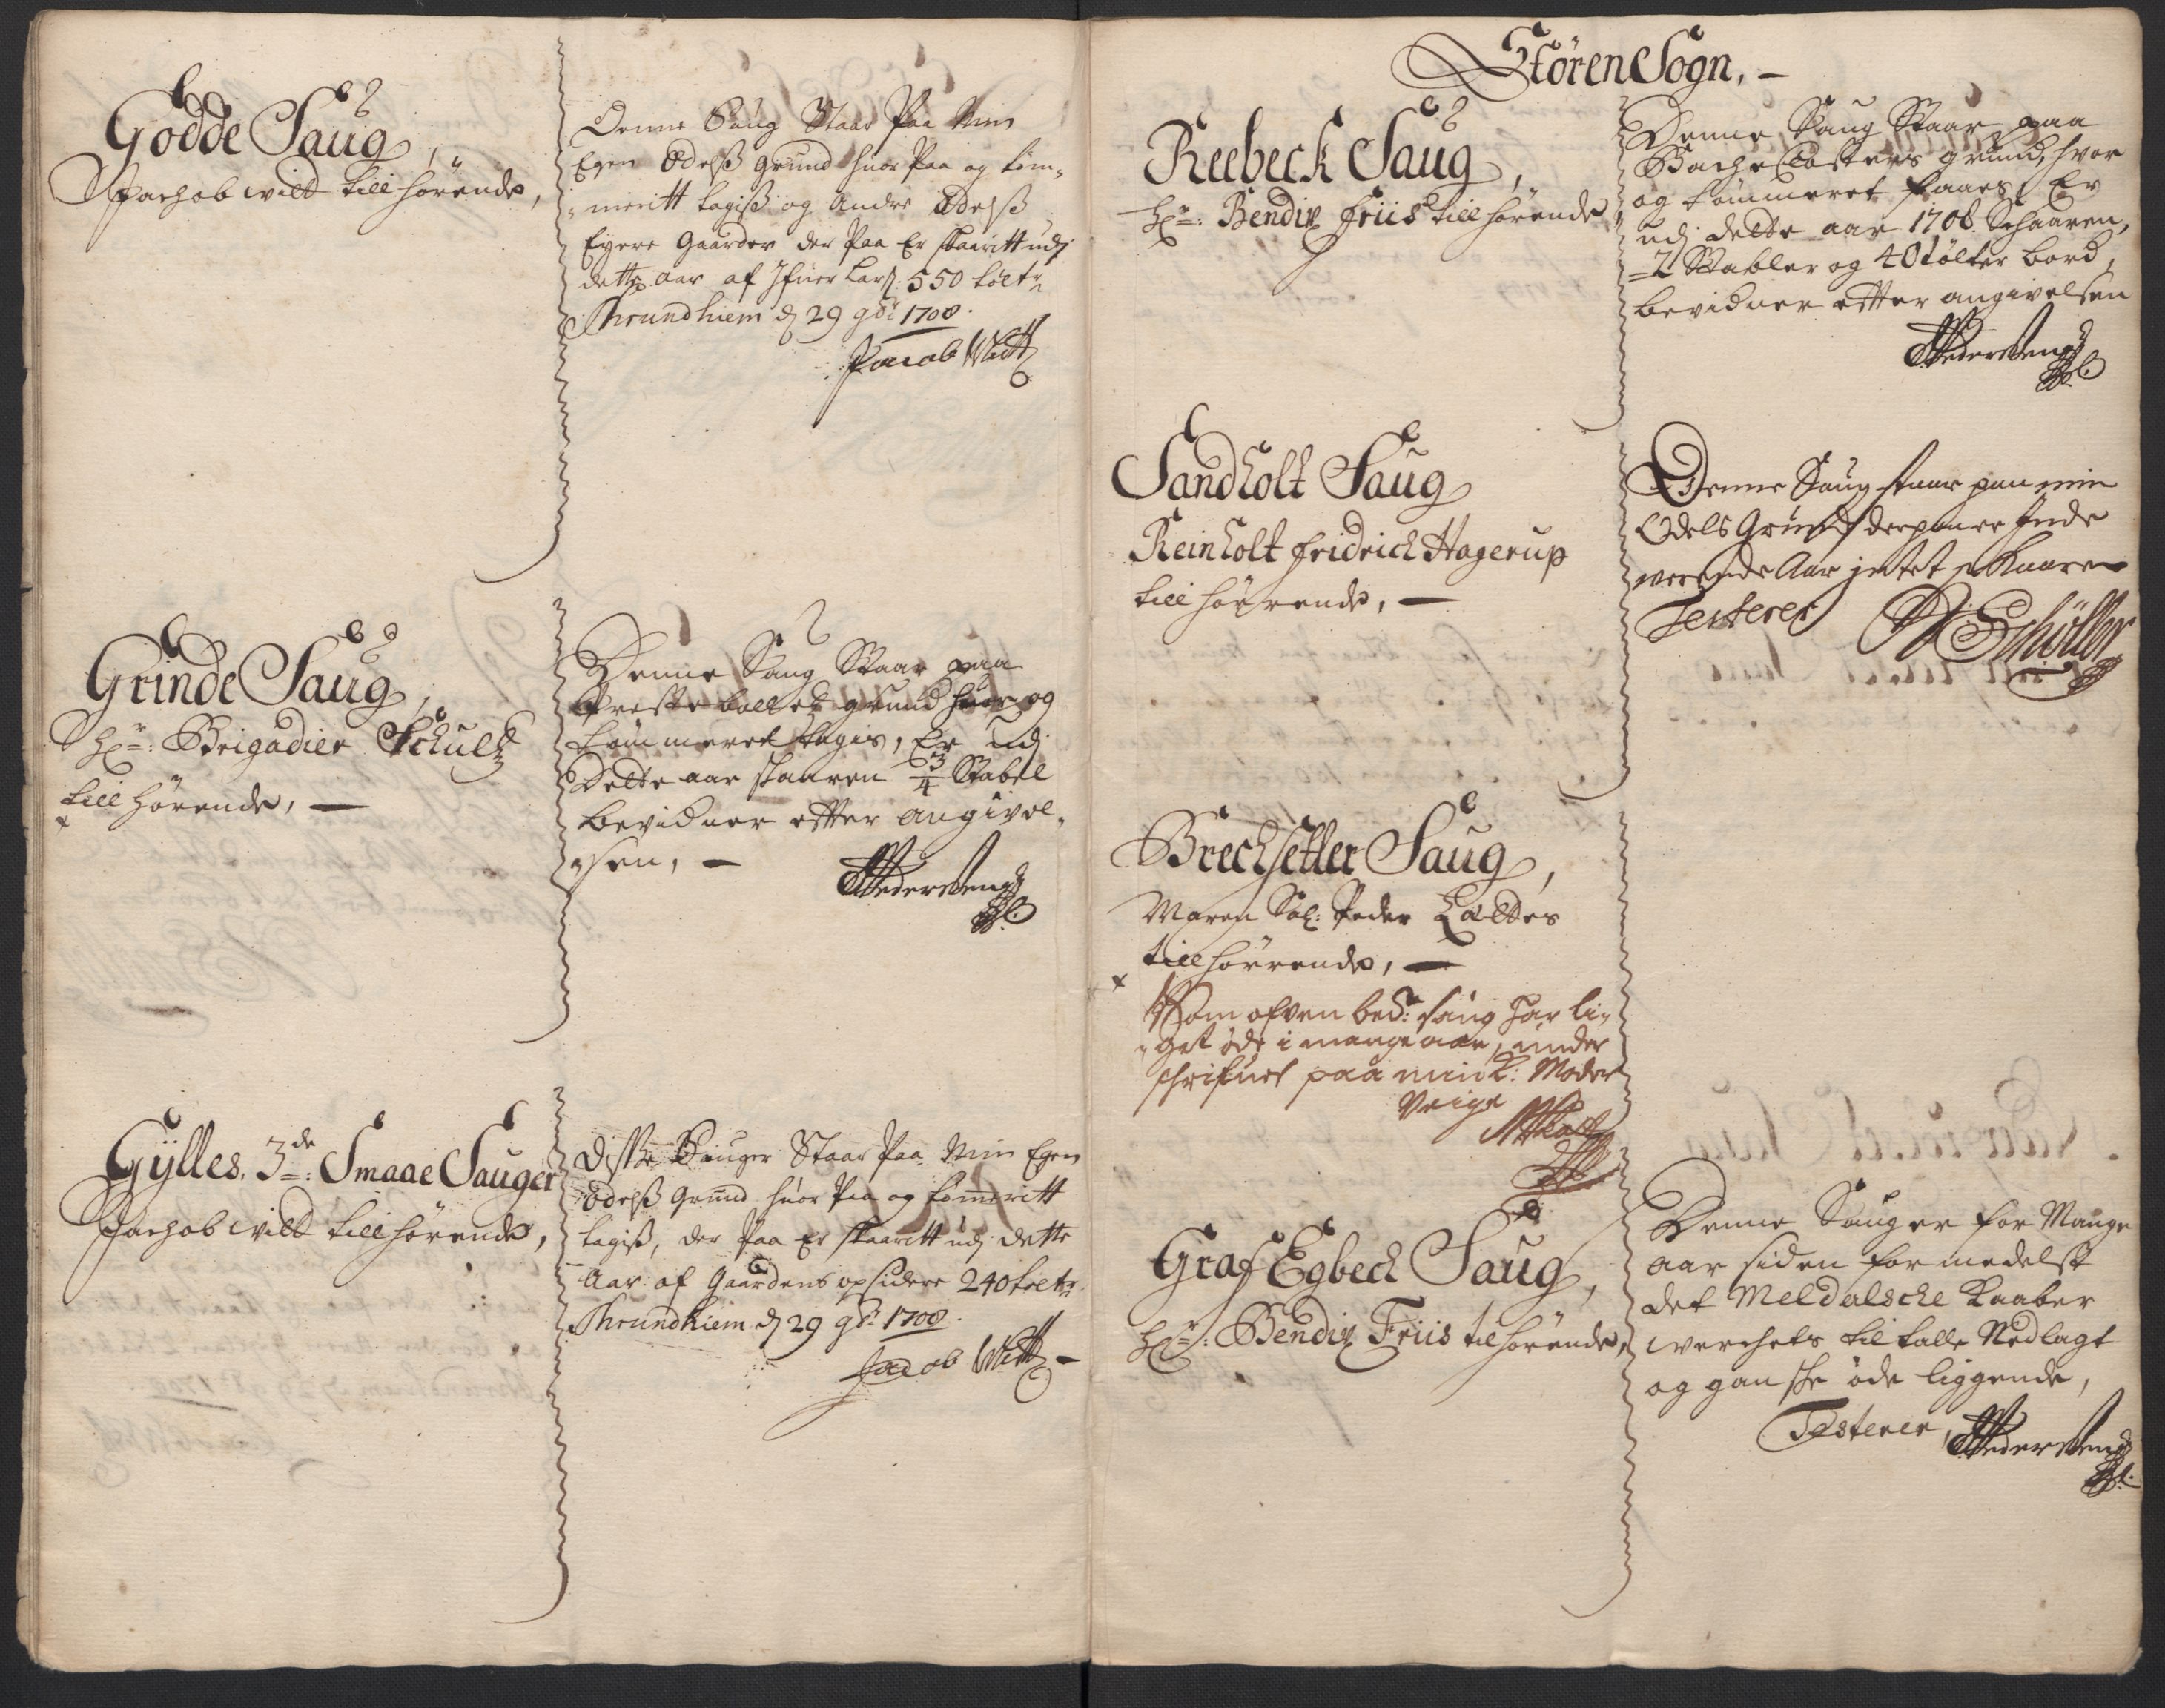 Godde Saug,
Jachob wild till hørende,
Denne Saug Staar Paa Min
Egen Odelß Grund huor Paa og tøm-
meritt tagiß og Andre Odelß
Eyere Gaarder der Paa Er skaaritt udj
dette aar af Ifuer Larß: 550 tølt
Thrundhiem d 29 9br 1708.
Jacob Witt
Grinde Saug,
Hr: Brigadier Schultz
till hørende, —
Denne Saug Staar paa
Prestebollets grund huor og
tømmeret tagis, Er udj
Dette aar skaaren 3/4 Stabel
bevidner efter angivel-
sen, —
Gylles, 3de: Smaae Sauger
Jachob wild till hørende,
Disse Sauger Staar Paa Min Egen
Odelß Grund huor Paa og tømeritt
tagiß, der Paa Er skaaritt udj dette
Aar af Gaardens opsidere 240 tølt
Thrundhiem d 29 9br 1708.
Jacob Witt —
Stören Sogn, —
Reebeck Saug,
Hr: Bendix Friis till hørende,
Denne Saug Staar paa
Bache Closters grund, hvor
og tømmeret faaes, Er
udj dette aar 1708 Schaaren,
2 Stabler og 40 tølter bord,
bevidner efter angivelsen
Sandholt Saug
Reinholt Fridrich Hagerup
till hørende, —
Denne Saug staar paa min
Odels Grund derpaa er Inde
werende Aar intet skaaren
Testerer Schøller
Brechsetter Saug,
Maren Sal: Peder
till hørrende, —
Som ofven bed: saug har li-
get øde i mange aar, under
schrifuet paa min K: Moder
Veigne
Graf Egbech Saug,
Hr: Bendix Friis til hørende,
Denne Saug er for Mange
aar siden formedelst
det Meldalsche Kaaber
werchets tilfalle Nedlagt
og gansche øde liggende,
Testerer,